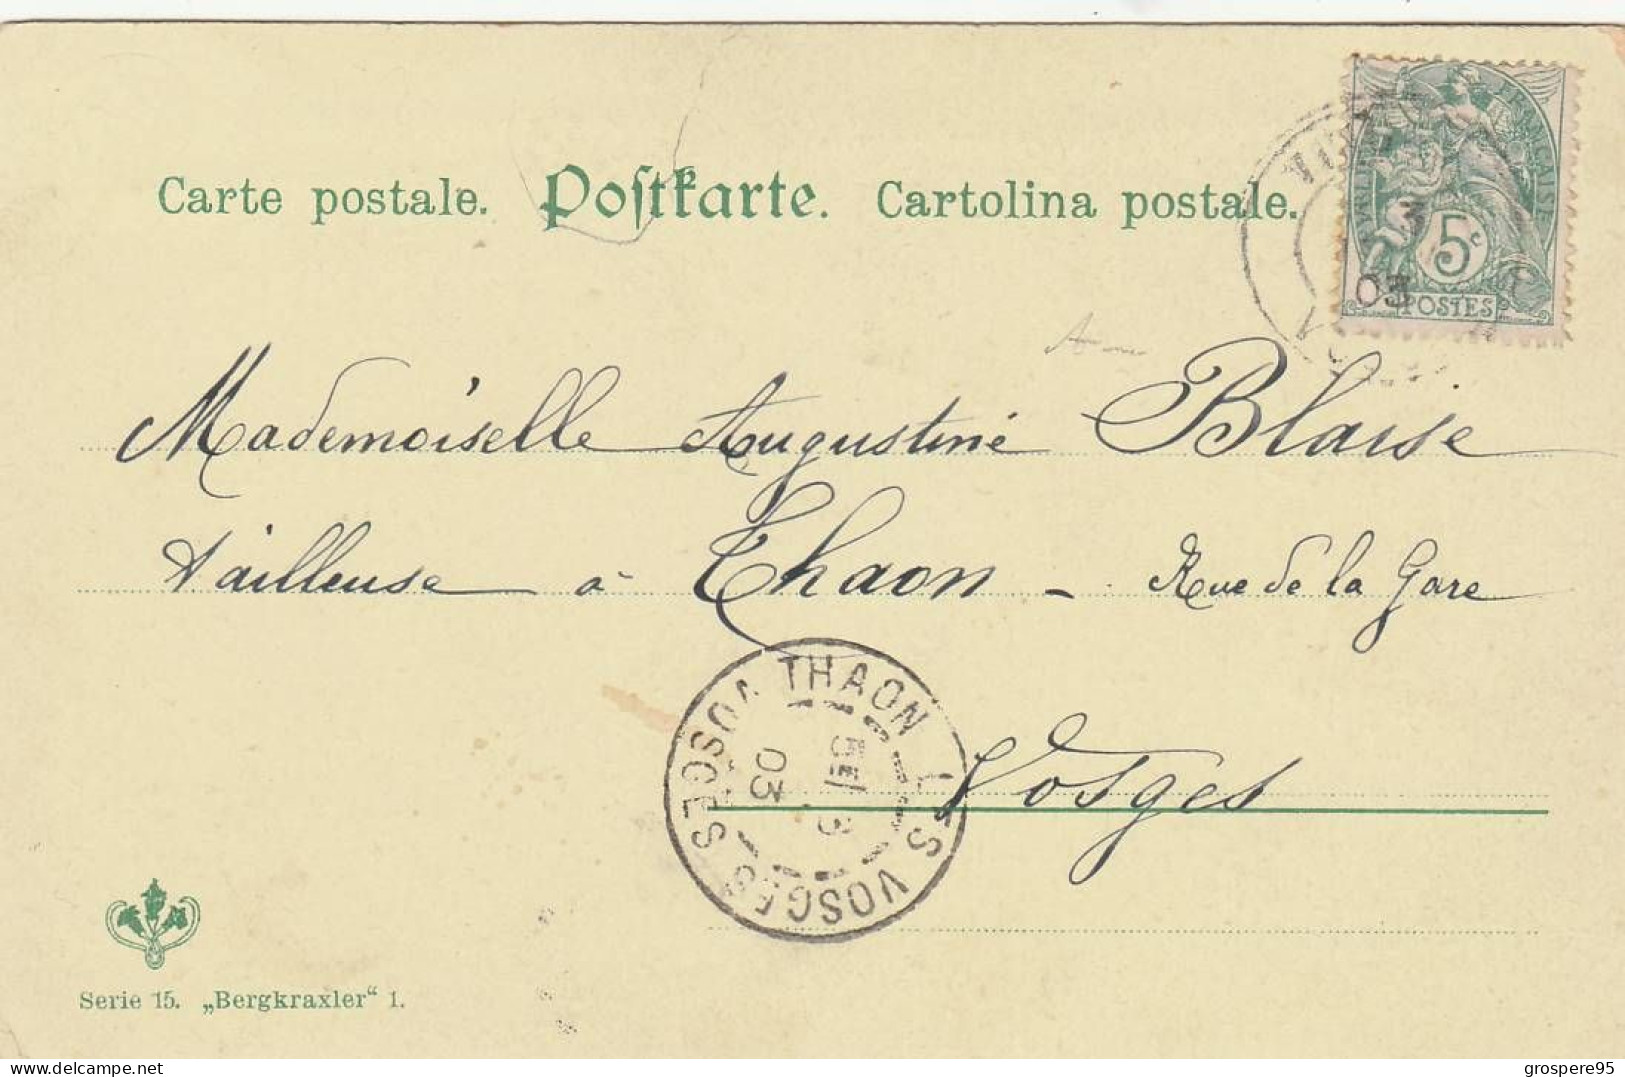 Carte postale. Postkarte. Cartolina postale.
RÉPUBLIQUE FRANÇAISE
5c
POSTES
3
03
Mademoiselle Augustine Blaise
tailleuse à Thaon - Rue de la Gare
Vosges
THAON LES VOSGES VOSGES
3
03
Serie 15. „Bergkraxler“ 1.
delcampe.net
grospere95